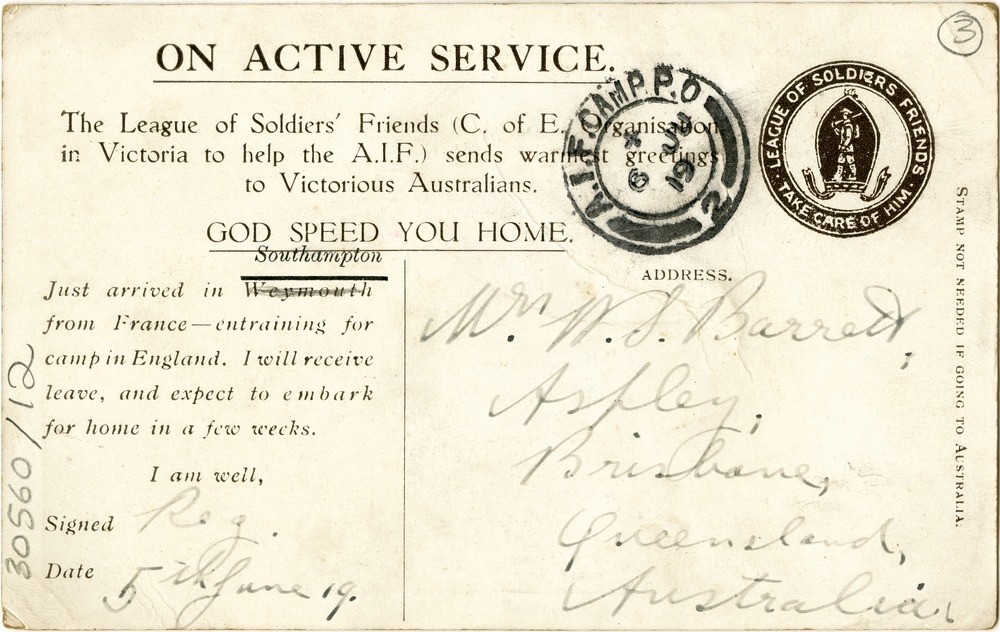 3
ON ACTIVE SERVICE.
The League of Soldiers' Friends (C. of E. Organisation
in Victoria to help the A.I.F.) sends warmest greetings
to Victorious Australians.
GOD SPEED YOU HOME.
A.I.F. CAMP P.O
6 JU 19
2
LEAGUE OF SOLDIERS FRIENDS
TAKE CARE OF HIM
STAMP NOT NEEDED IF GOING TO AUSTRALIA.
Southampton
Just arrived in Weymouth
from France—entraining for
camp in England. I will receive
leave, and expect to embark
for home in a few weeks.
I am well,
Signed Reg.
Date 5th June 19.
30560/12
ADDRESS.
Mrs W. S. Barrett,
Aspley,
Brisbane,
Queensland,
Australia.